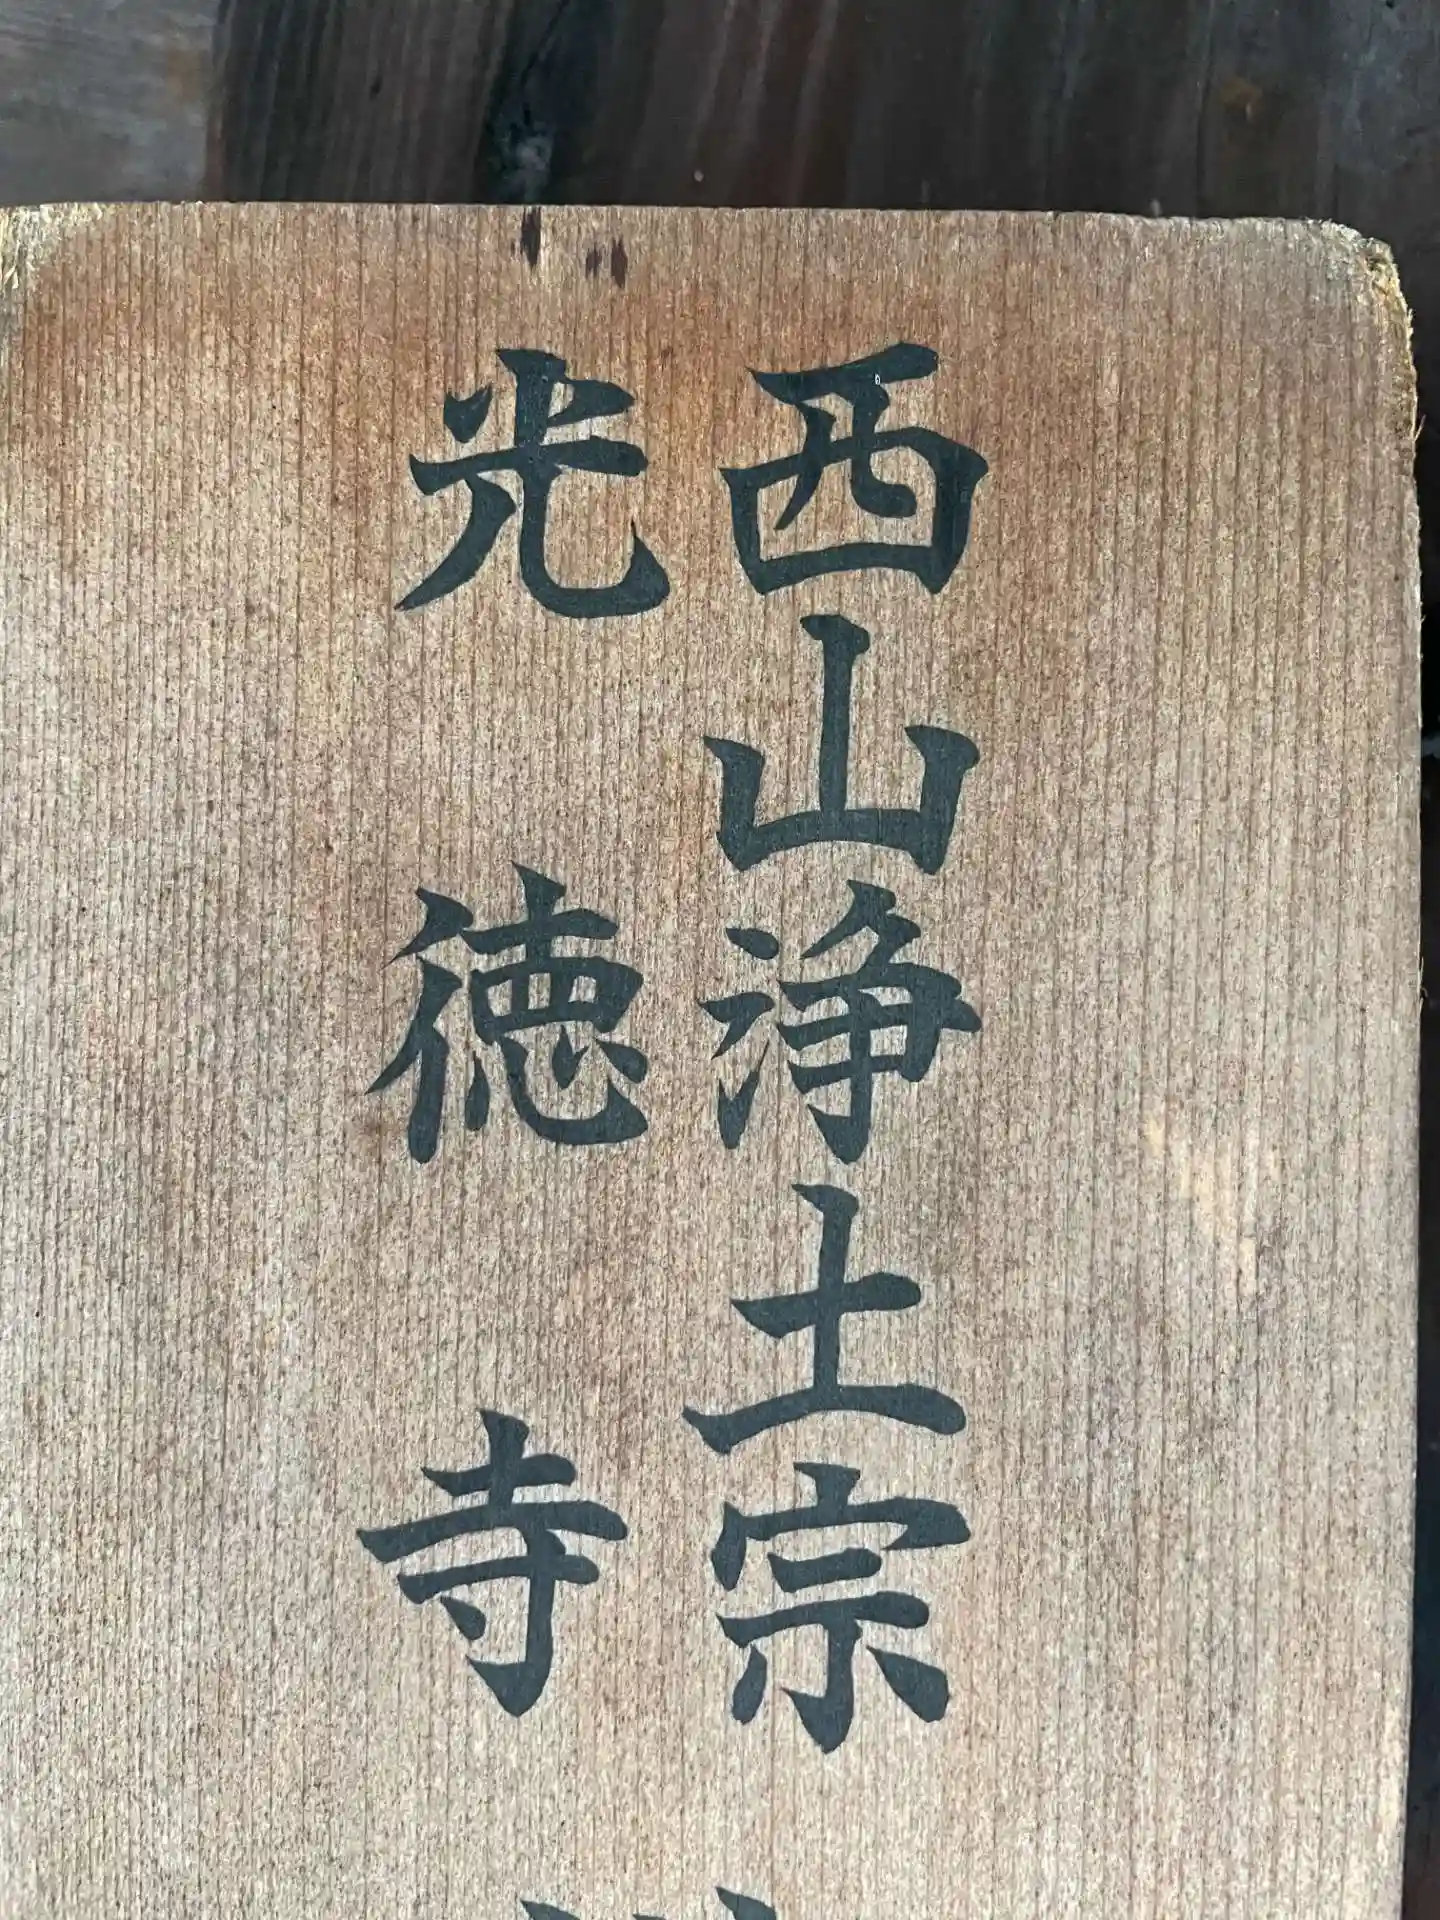 西山浄土宗
光徳寺